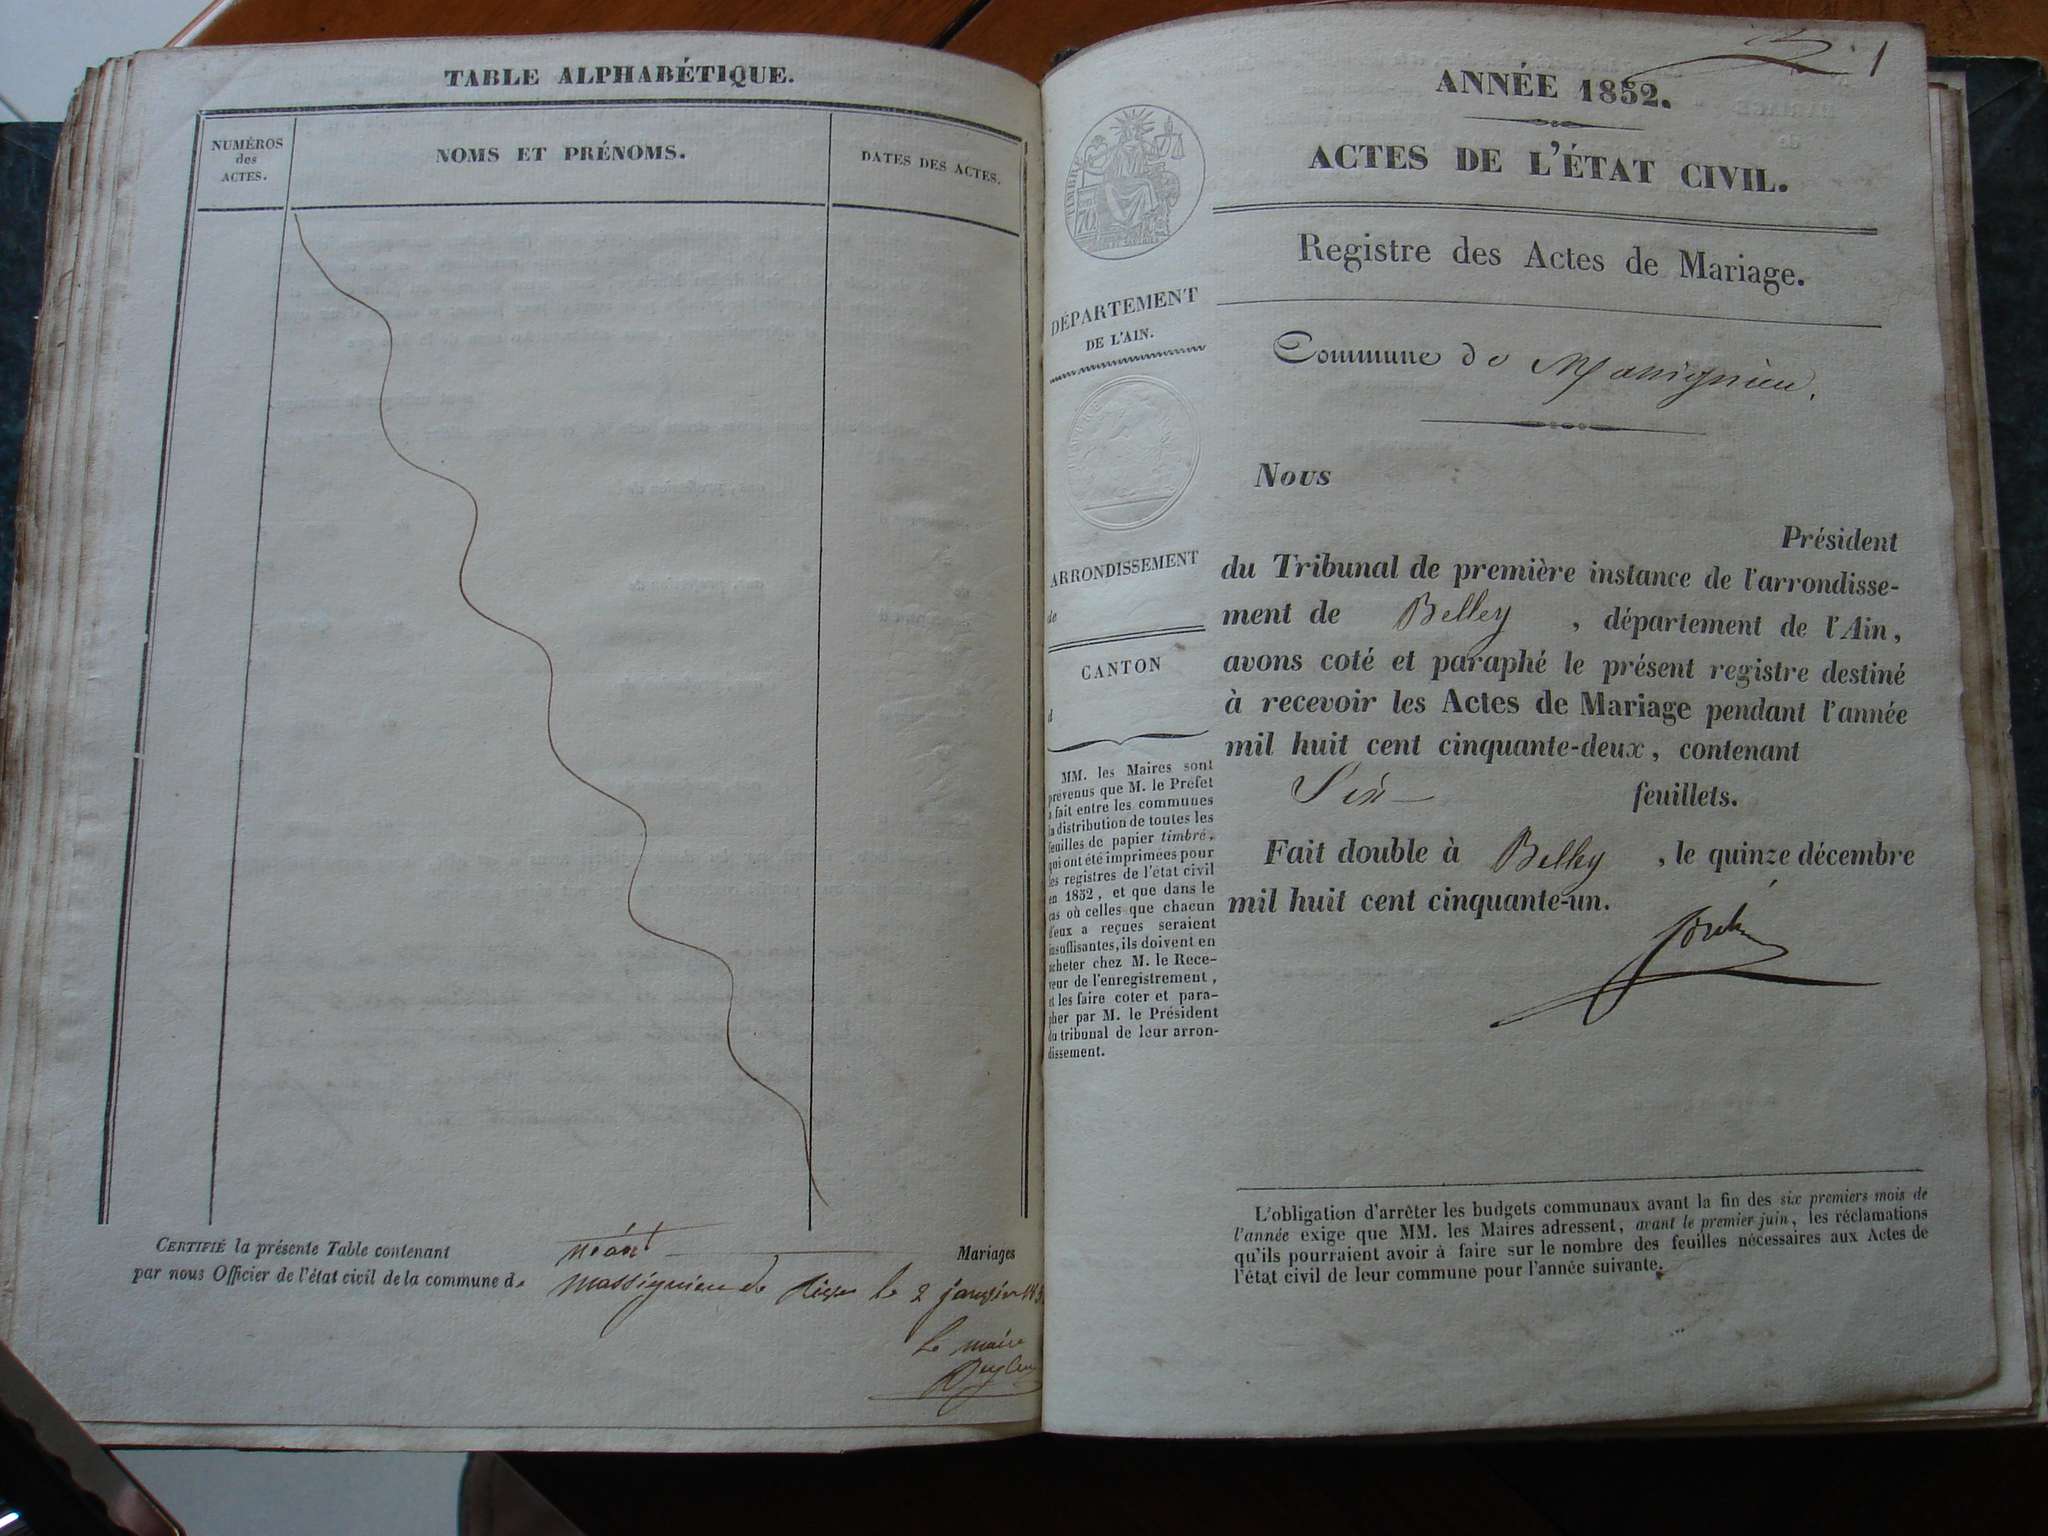 TABLE ALPHABÉTIQUE.
NUMÉROS
des
ACTES.
NOMS ET PRÉNOMS.
DATES DES ACTES.
CERTIFIÉ la présente Table contenant néant Mariages
par nous Officier de l'état civil de la commune de massignieu de le 2 janvier
Le maire
1
ANNÉE 1852.
ACTES DE L'ÉTAT CIVIL.
Registre des Actes de Mariage.
TIMBRE
DÉPARTEMENT
DE L'AIN.
Commune de Massignieu.
ARRONDISSEMENT
de
CANTON
d
MM. les Maires sont
prévenus que M. le Préfet
a fait entre les communes
la distribution de toutes les
feuilles de papier timbré,
qui ont été imprimées pour
les registres de l'état civil
en 1852, et que dans le
cas où celles que chacun
d'eux a reçues seraient
insuffisantes, ils doivent en
acheter chez M. le Rece-
veur de l'enregistrement,
et les faire coter et para-
pher par M. le Président
du tribunal de leur arron-
dissement.
Nous
Président
du Tribunal de première instance de l'arrondisse-
ment de Belley, département de l'Ain,
avons coté et paraphé le présent registre destiné
à recevoir les Actes de Mariage pendant l'année
mil huit cent cinquante-deux, contenant
Six feuillets.
Fait double à Belley, le quinze décembre
mil huit cent cinquante-un.
L'obligation d'arrêter les budgets communaux avant la fin des six premiers mois de
l'année exige que MM. les Maires adressent, avant le premier juin, les réclamations
qu'ils pourraient avoir à faire sur le nombre des feuilles nécessaires aux Actes de
l'état civil de leur commune pour l'année suivante.